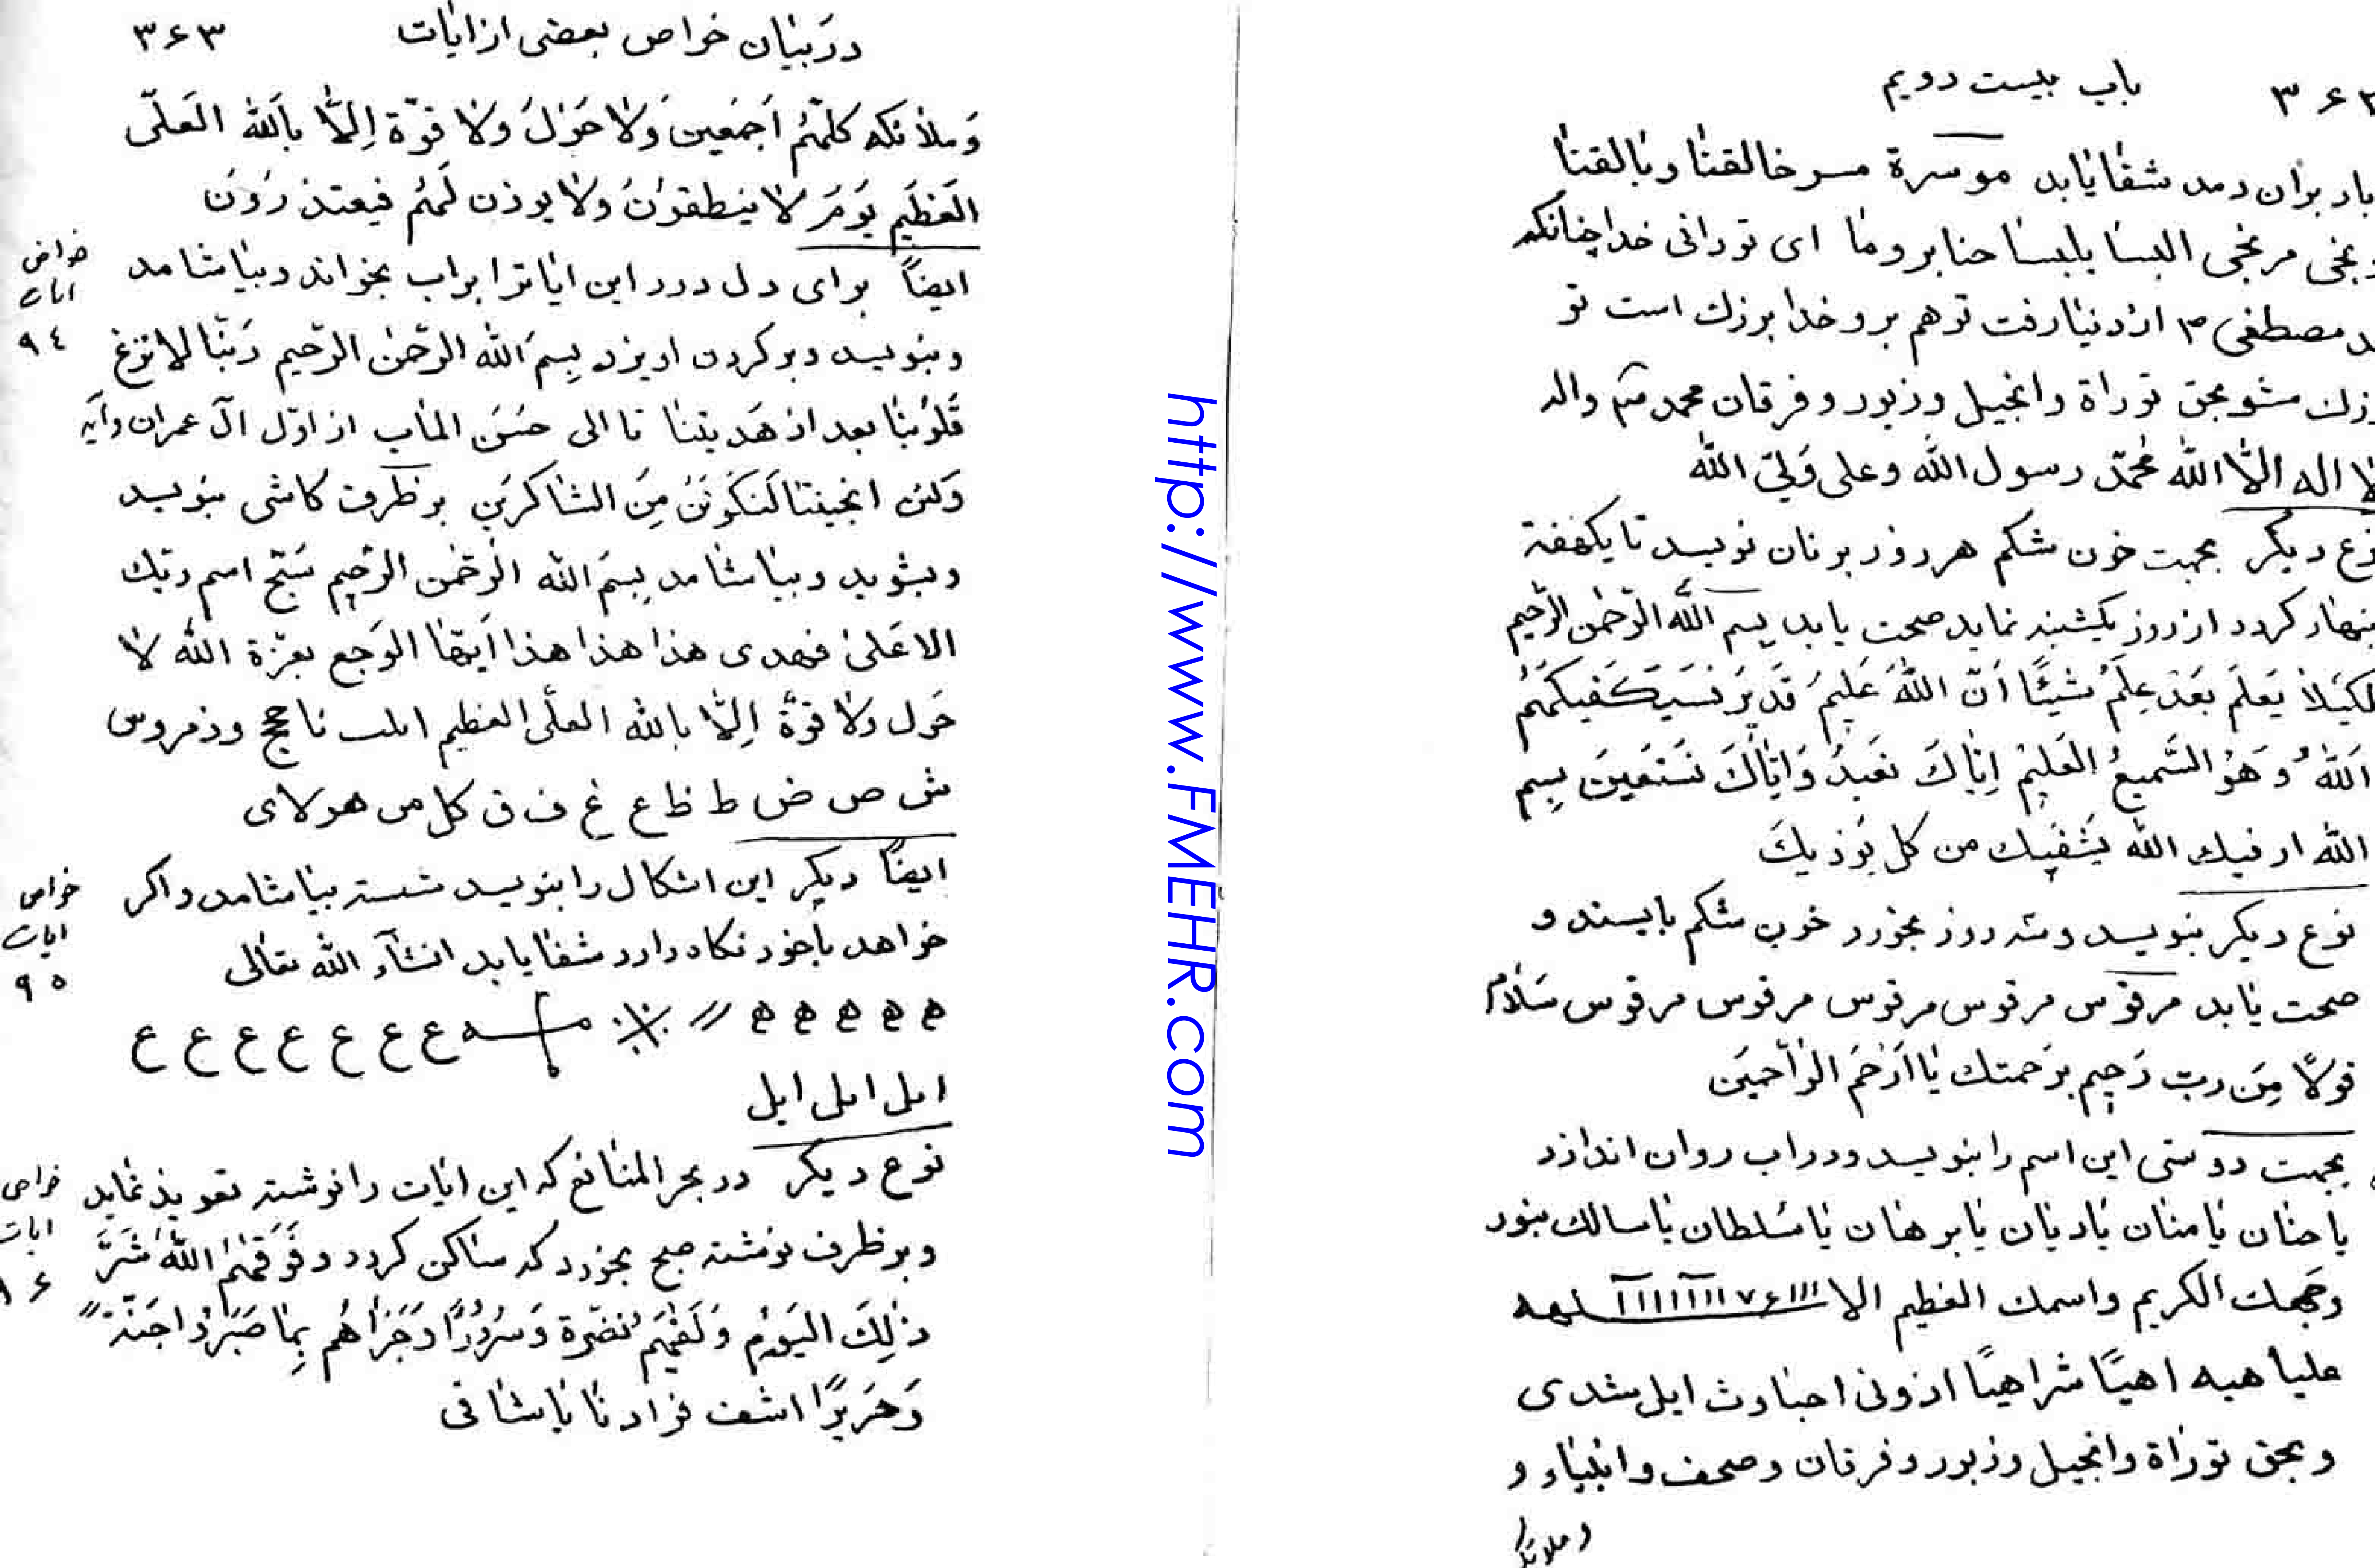 باب بیست دویم
باد بران دمد شفا یابد موسرة مسر خالقتا وبالقتا
مرنجی البسا یلبسا حنا برو ما ای تورانی خدا چنانکه
مصطفی ص از دنیا رفت تو هم برو خدا بزرك است تو
مشو بحق توراة وانجیل وزبور وفرقان محمد ص واله
لا اله الّا الله محمّد رسول الله وعلی ولیّ الله
دیکر بجهت خون شکم هر روز بر نان نویسد تا یکهفته
کردد از روز یکشنبه نماید صحت یابد بسم الله الرّحمن الرّحیم
لکیلا یعلم بعد علم شیئًا انّ الله علیم قدیر فسیکفیکهم
الله و هو السّمیع العلیم ایّاك نعبد وایّاك نستعین بسم
الله ارفیك الله یشفیك من کل یوذیك
نوع دیکر بنویسد وسه روز بخورد خون شکم بایستد و
صحت یابد مرقوس مرقوس مرقوس مرقوس مرقوس سلام
قولًا من ربّ رحیم برحمتك یا ارحم الرّاحمین
بجهت دوستی این اسم را بنویسد ودر اب روان اندازد
یا حنان یا منان یا دیان یا برهان یا سلطان یا سالك بنور
وجهك الکریم واسمك العظیم الا
علیا هیه اهیًا شراهیًا ادونی اصباوث ایل شدی
و بحق توراة وانجیل وزبور وفرقان وصحف وانبیاء و
وملائکه
در بیان خواص بعضی از ایات ۳۶۳
وملائکه کلّهم اجمعین ولا حول ولا قوّة الّا بالله العلیّ
العظیم یوم لا ینطقون ولا یوذن لهم فیعتذرون
ایضًا برای دل درد این ایاترا براب بخواند و بیاشامد
خواص
ایات
۹۴
وبنویسد وبر کردن اویزد بسم الله الرّحمن الرّحیم ربّنا لا تزغ
قلوبنا بعد اذ هدیتنا تا الی حسن الماب از اوّل ال عمران وآیه
ولئن انجیتنا لنکونن من الشاکرین بر ظرف کاشی بنویسد
وبشوید وبیاشامد بسم الله الرّحمن الرّحیم سبّح اسم ربّك
الاعلی فهدی هذا هذا هذا ایّها الوجع بعزّة الله لا
حول ولا قوّة الّا بالله العلّی العظیم
ش ص ض ط ظ ع غ ف ق
ایضًا دیکر این اشکال را بنویسد شسته بیاشامد واکر
خواص
ایات
۹۵
خواهد با خود نکاه دارد شفا یابد انشآء الله تعالی
ه ه ه ه ه ع ع ع ع ع ع ع
ایل ایل ایل
نوع دیکر در بحر المنافع که این ایات را نوشته تعویذ نماید
خواص
ایات
وبر ظرف نوشته صبح بخورد که ساکن کردد وفوقهم الله شرّ
ذلك الیوم ولقیهم نضرة وسرورًا وجزاهم بما صبروا جنّة
وحریرًا اشف یا شافی
http://www.FMEHR.com